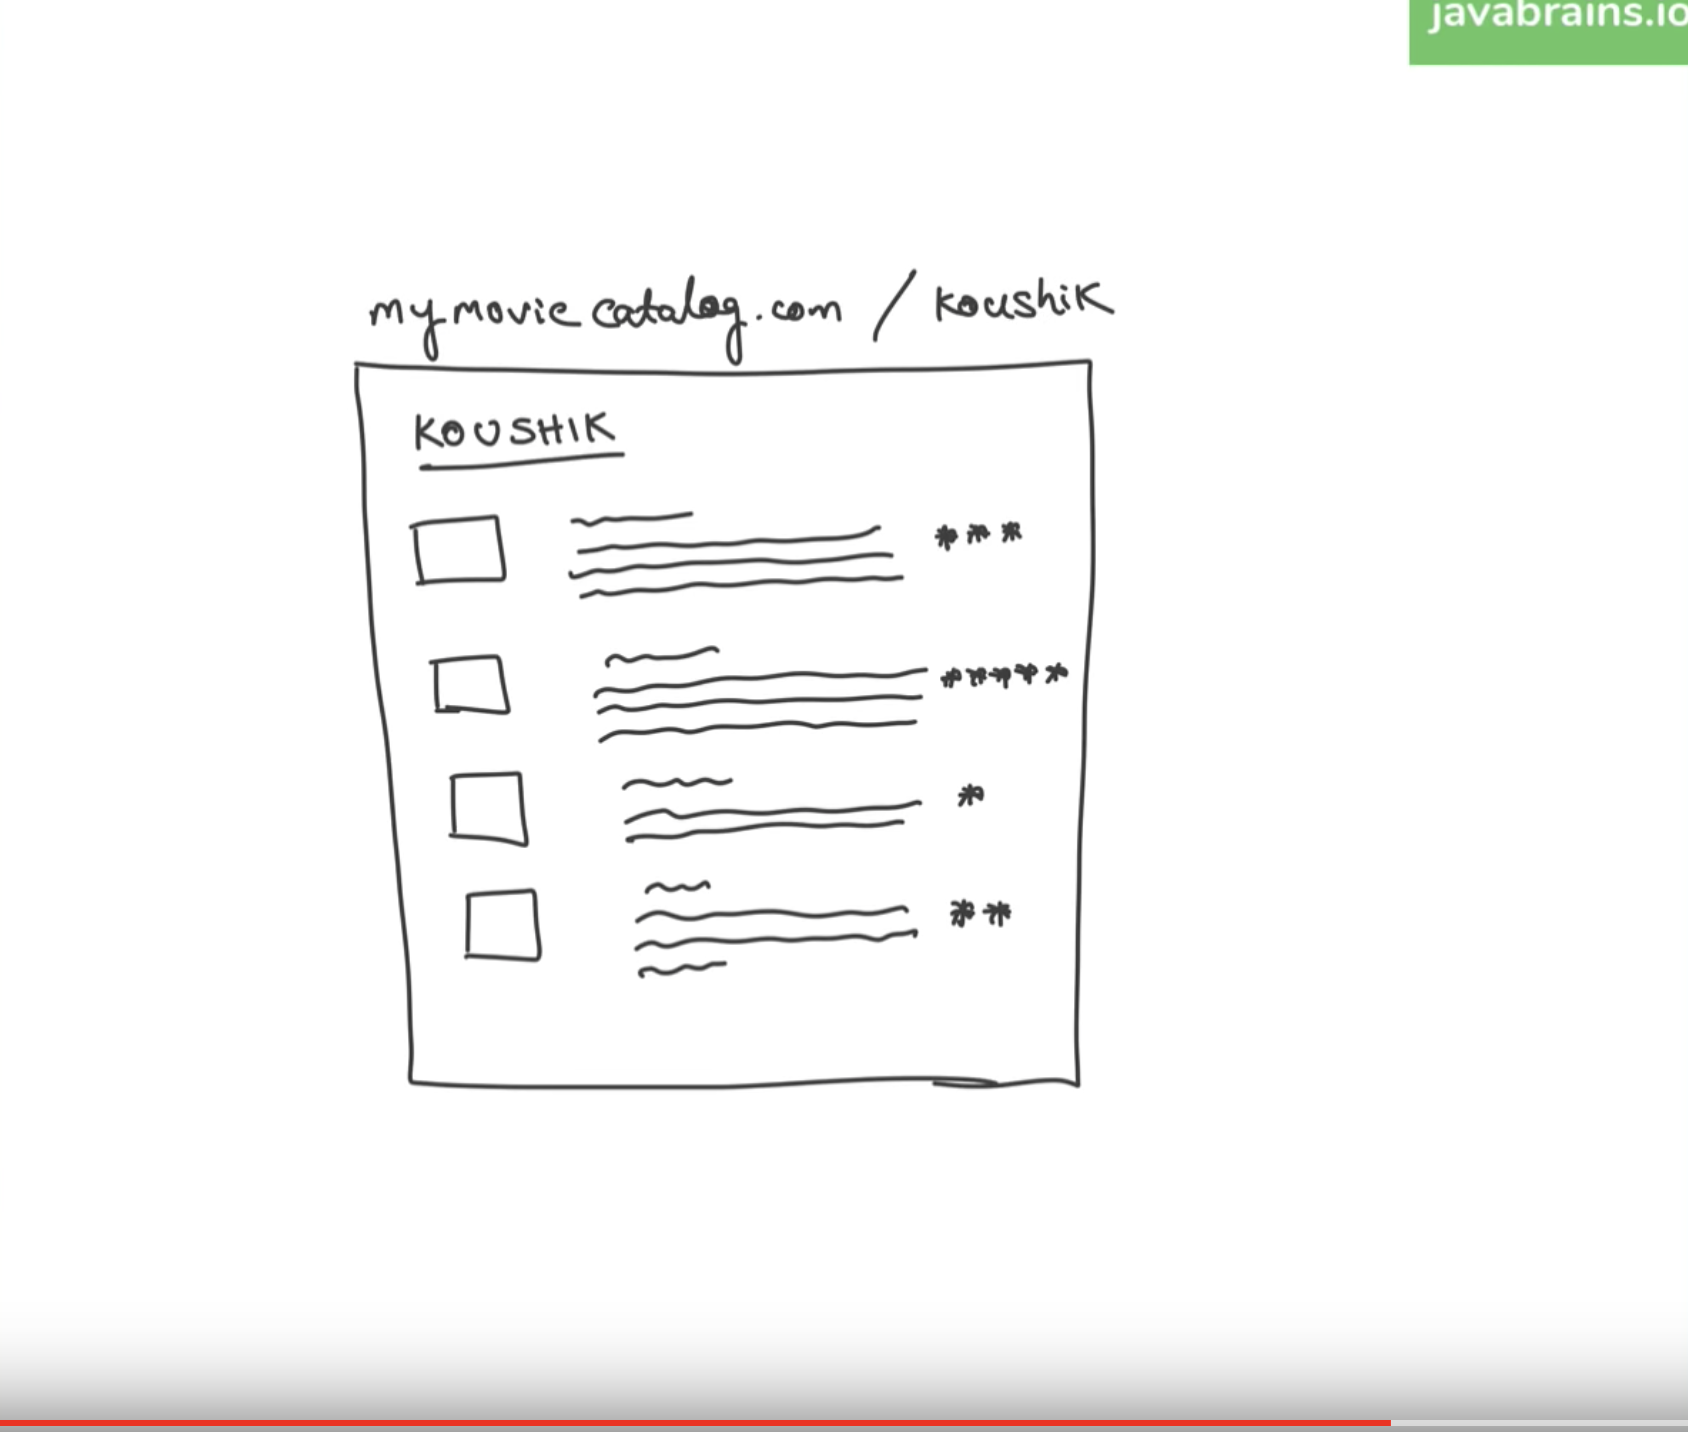 javabrains.io
mymoviecatalog.com / koushik
KOUSHIK
***
*****
*
**